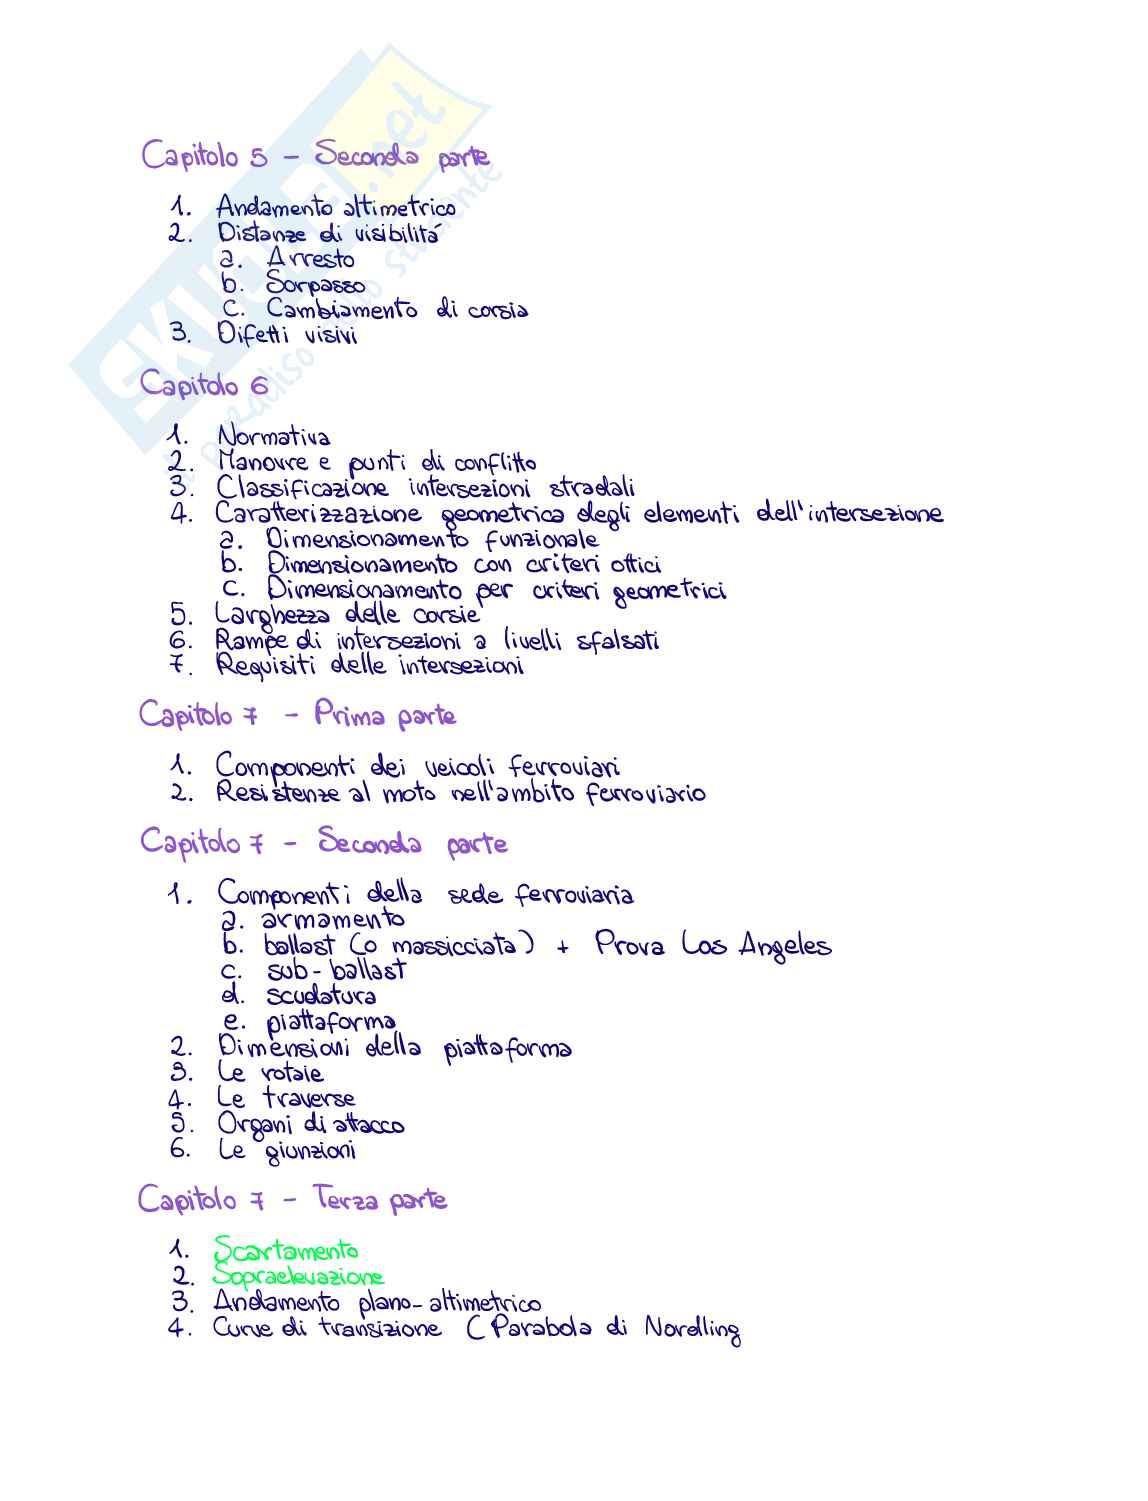 SKUOLA.net
il paradiso dello studente
Capitolo 5 - Seconda parte
1. Andamento altimetrico
2. Distanze di visibilitá
a. Arresto
b. Sorpasso
c. Cambiamento di corsia
3. Difetti visivi
Capitolo 6
1. Normativa
2. Manovre e punti di conflitto
3. Classificazione intersezioni stradali
4. Caratterizzazione geometrica degli elementi dell'intersezione
a. Dimensionamento funzionale
b. Dimensionamento con criteri ottici
c. Dimensionamento per criteri geometrici
5. Larghezza delle corsie
6. Rampe di intersezioni a livelli sfalsati
7. Requisiti delle intersezioni
Capitolo 7 - Prima parte
1. Componenti dei veicoli ferroviari
2. Resistenze al moto nell'ambito ferroviario
Capitolo 7 - Seconda parte
1. Componenti della sede ferroviaria
a. armamento
b. ballast (o massicciata) + Prova Los Angeles
c. sub-ballast
d. scudatura
e. piattaforma
2. Dimensioni della piattaforma
3. Le rotaie
4. Le traverse
5. Organi di attacco
6. Le giunzioni
Capitolo 7 - Terza parte
1. Scartamento
2. Sopraelevazione
3. Andamento plano-altimetrico
4. Curve di transizione (Parabola di Nordling